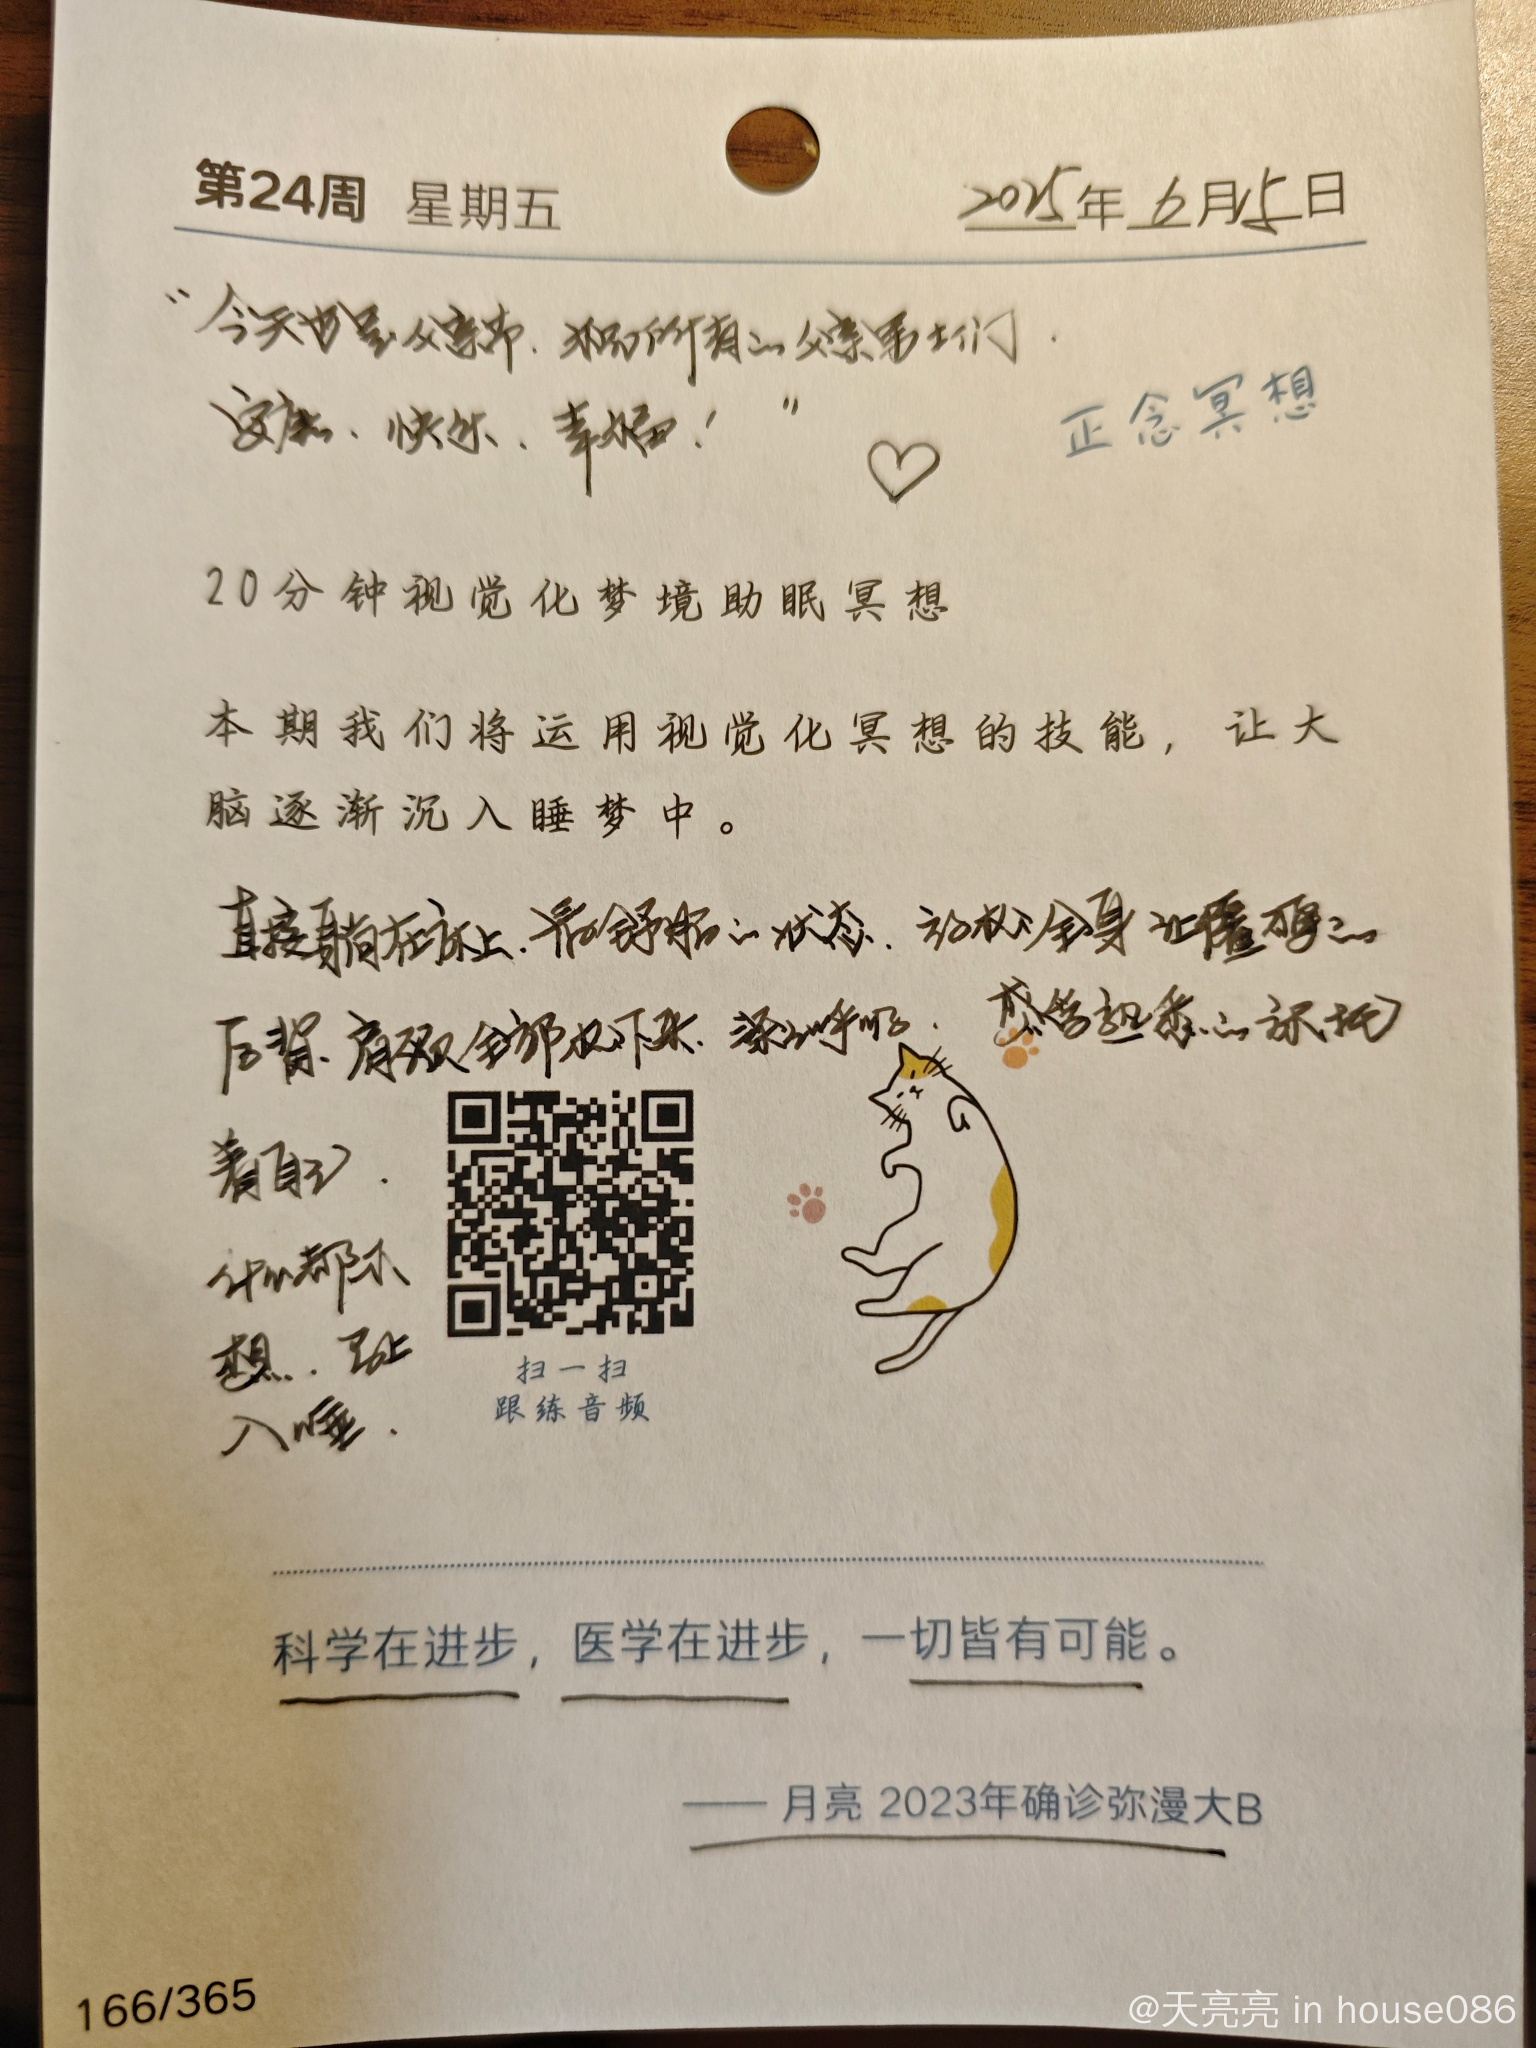 第24周 星期五 2025年6月15日
"今天也是父亲节. 祝所有的父亲男士们.
安康、快乐、幸福！"
正念冥想
20分钟视觉化梦境助眠冥想
本期我们将运用视觉化冥想的技能，让大
脑逐渐沉入睡梦中。
直接躺在床上. 最舒服的状态. 放松全身 让僵硬的
后背. 肩颈全部放下来. 深呼吸.
着自己.
什么都不
想. 马上
入睡.
扫一扫
跟练音频
科学在进步，医学在进步，一切皆有可能。
—— 月亮 2023年确诊弥漫大B
166/365
@天亮亮 in house086